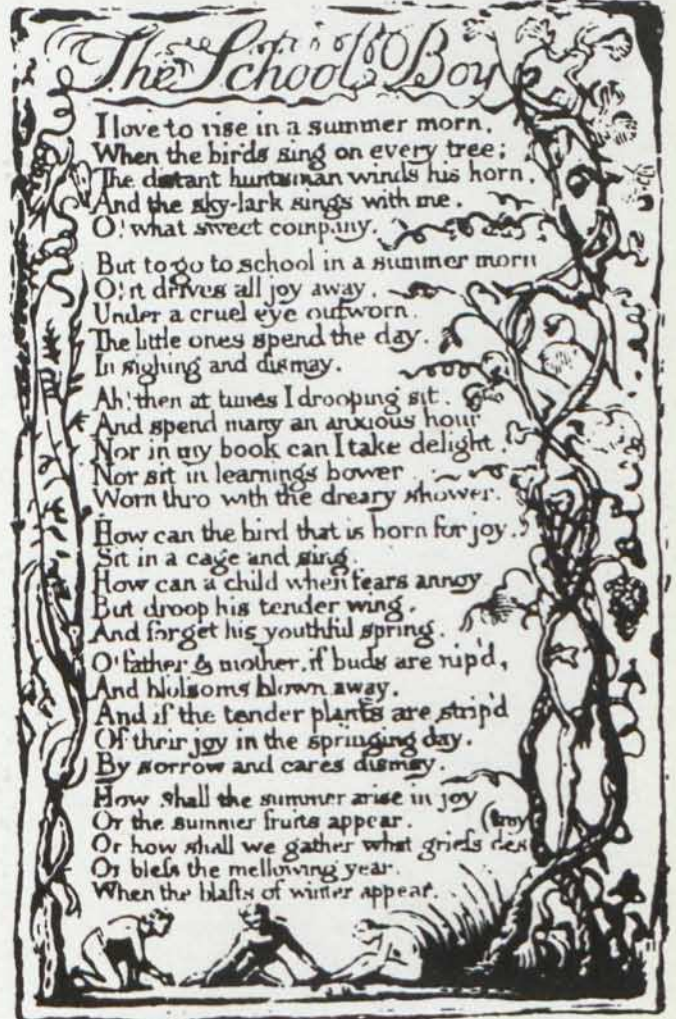 The School Boy
I love to rise in a summer morn,
When the birds sing on every tree;
The distant huntsman winds his horn,
And the sky-lark sings with me.
O! what sweet company.
But to go to school in a summer morn
O! it drives all joy away.
Under a cruel eye outworn.
The little ones spend the day.
In sighing and dismay.
Ah! then at times I drooping sit.
And spend many an anxious hour
Nor in my book can I take delight.
Nor sit in learnings bower
Worn thro with the dreary shower.
How can the bird that is born for joy.
Sit in a cage and sing.
How can a child when fears annoy
But droop his tender wing.
And forget his youthful spring.
O! father & mother, if buds are nip'd,
And blossoms blown away.
And if the tender plants are strip'd
Of their joy in the springing day.
By sorrow and cares dismay.
How shall the summer arise in joy
Or the summer fruits appear. (troy
Or how shall we gather what griefs des
Or bless the mellowing year.
When the blasts of winter appear.